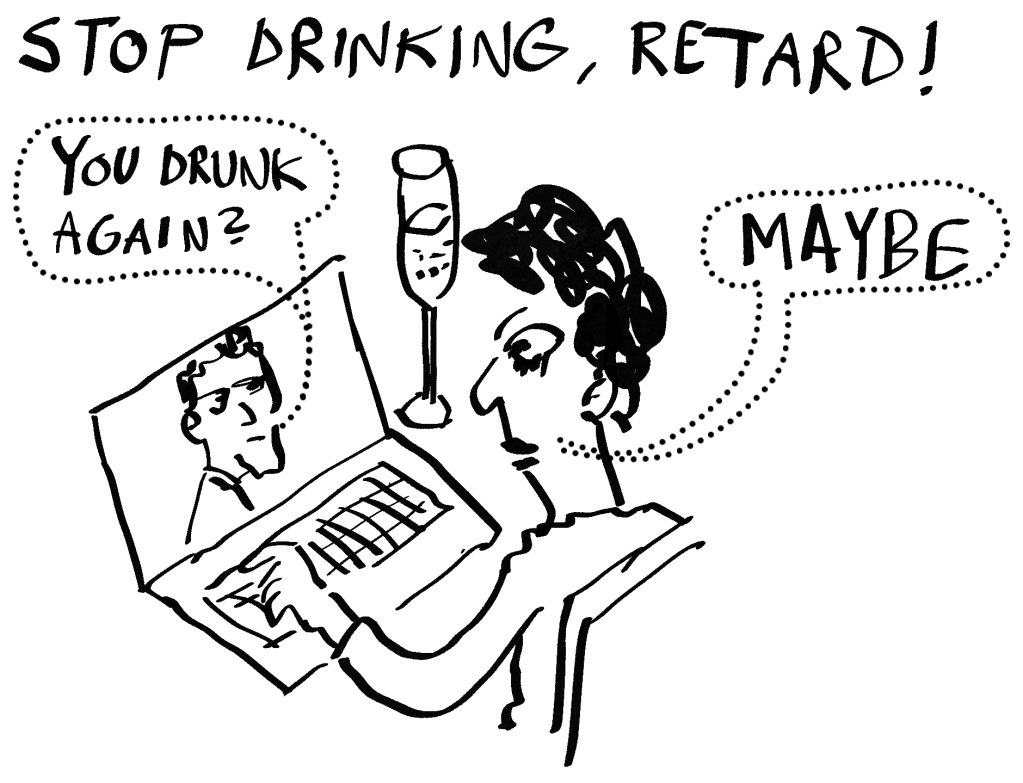 STOP DRINKING, RETARD!
YOU DRUNK
AGAIN?
MAYBE